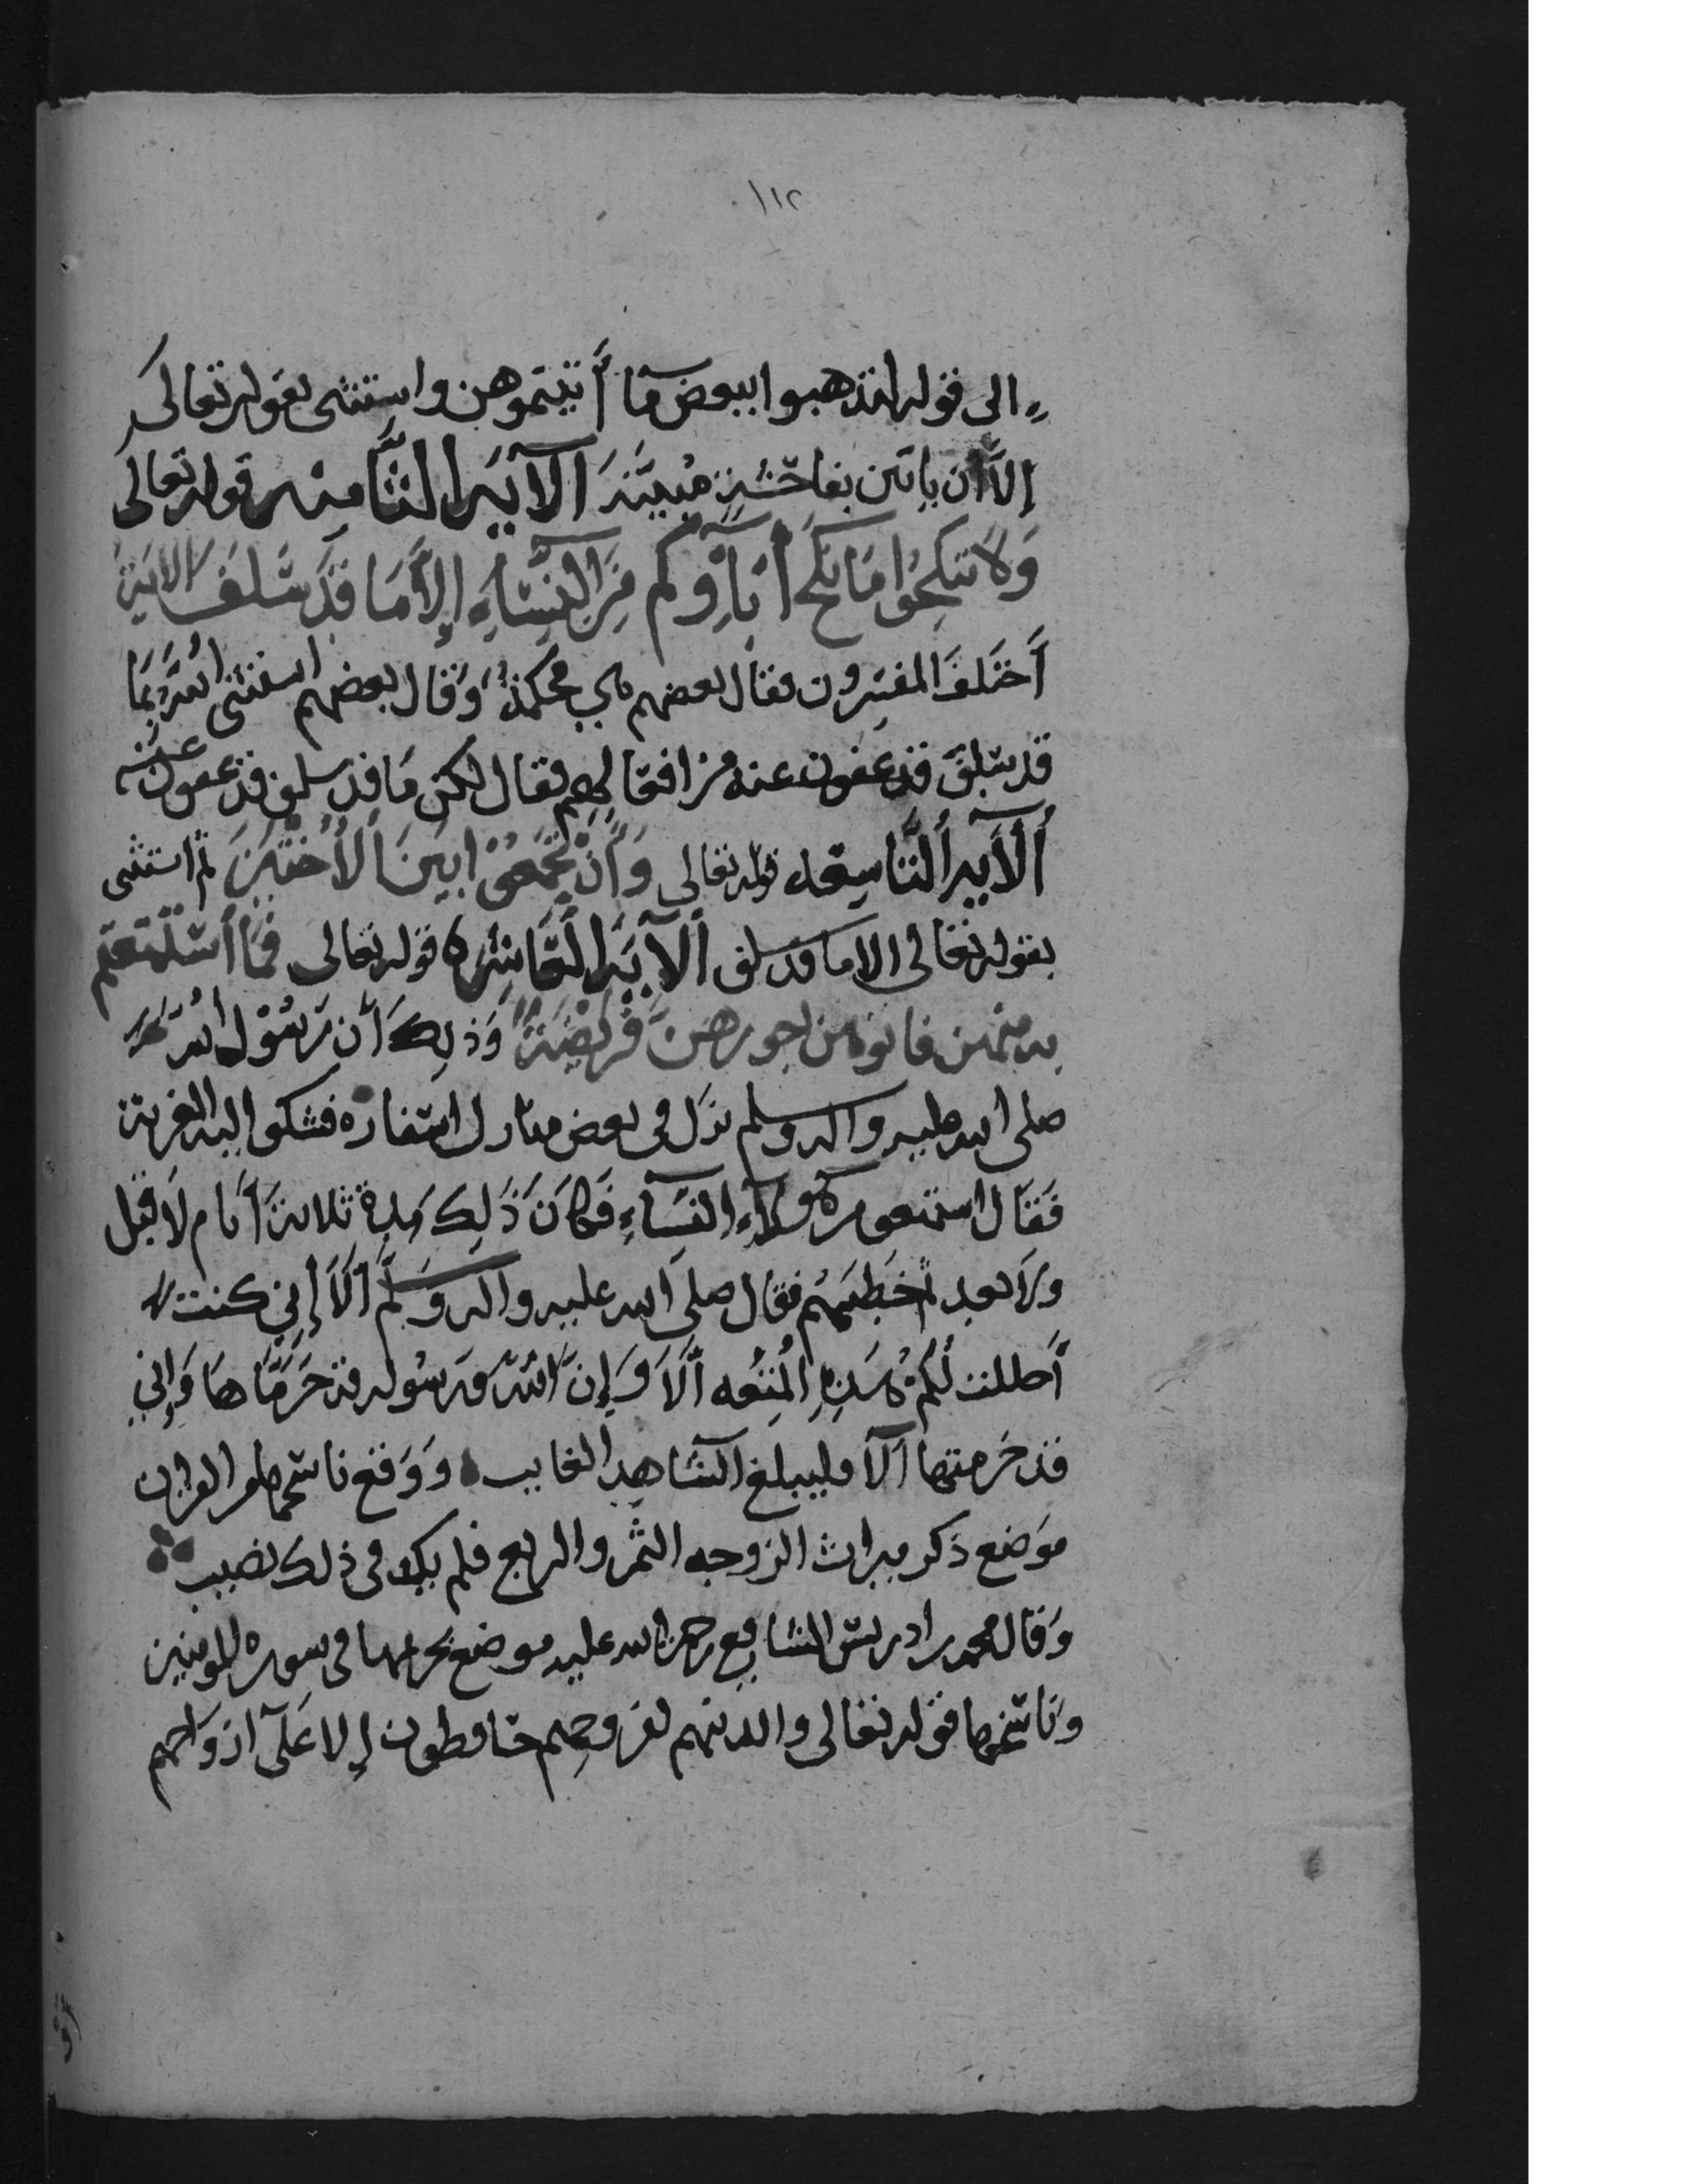 ١١٢
الى قوله لتذهبوا ببعض مآ أتيتموهن واستثنى بقوله تعالى
إلاَّ أن ياتين بفاحشةٍ مُبيّنَة اَلآية الثَّامنه قوله تعالى
وَلاَ تنكِحُوا مَا نكَحَ أبآؤكم مِنَ النِّسَآءِ إلاَّ مَا قَدْ سَلَفَ الاية
أَختَلفَ المفسِّرون فقال بعضهم هي محكمة وَقال بعضهم استثنى اللهُ بمَا
قد سلفَ قد عفوت عنه من افعالهم فقال لكن مَا قد سلف قد عفوت عنه
اَلآية اَلتَّاسعه قوله تعالى وَأَنْ تَجْمَعُوْا بَينَ اَلأُخْتَيْنِ ثم استثنى
بقوله تعالى الا ما قد سلف اَلآيَة اَلعَاشره قوله تعالى فمَا أستمتعتم
به منهن فاتوهن اجورهنَّ فَرِيْضَةً وَذلِكَ أن رَسُوْل الله
صلى الله عليه واله وسلم نزل في بعض منازل اسفاره فشكوا اليه الغربة
فَقال استمتعو من هولآءِ النِسَآءِ فَكانَ ذَلِك مدة ثلاثة أيام لاَ قبل
ولاَ بعد ثم خطبهُم فقال صلى الله عليه واله وَسَلّم اَلاَ إنِي كنت
أَحللت لَكُمْ هَذِهِ المُتعه اَلاَ وَإنَّ اللهَ وَرسُوله قد حَرّمَاهَا وَإني
قد حَرمتها اَلاَ فليبلغ الشَاهِد الغايب وَوَقع ناسخها من القران
موَضع ذكر ميراث الزوجه الثمن والربع فلم يكن لها في ذلك نصيب
وَقال محمد بن ادريس الشافعي رحمة الله عليه موضع تحريمها في سوره المومنين
وَناسخها قوله تعالى والذينهم لفروجهم حَافظون إلا عَلَى ازوَاجهم